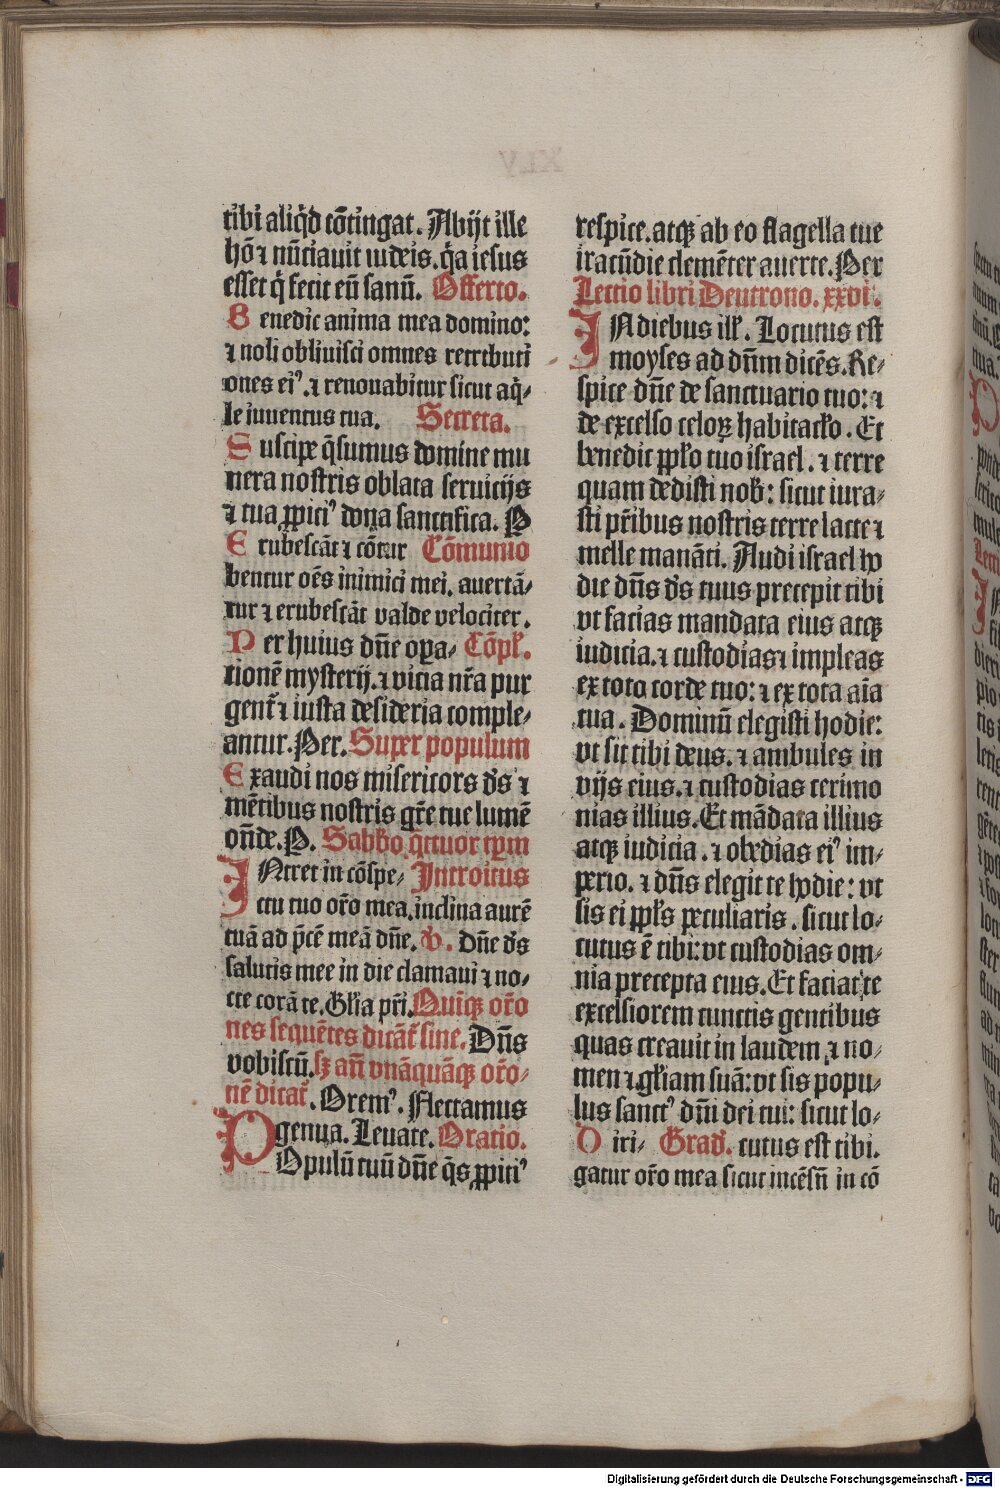 tibi aliq̄d cōtingat. Abijt ille
hō ⁊ nūciauit iudeis. q̄a iesus
esset q̄ fecit eū sanū. Offerto.
Benedic anima mea domino:
⁊ noli obliuisci omnes retributi
ones eiꝰ. ⁊ renouabitur sicut aq̄-
le iuuentus tua. Secreta.
Suscipe q̄sumus domine mu
nera nostris oblata seruicijs
⁊ tua ꝓpiciꝰ dona sanctifica. P
Erubescāt ⁊ cōtur Cōmunio
bentur oēs inimici mei. auertā-
tur ⁊ erubescāt valde velociter.
Per huius dn̄e oꝑa- Cōpl̄.
tionē mysterij. ⁊ vicia nr̄a pur
gent̄ ⁊ iusta desideria comple-
antur. Per. Super populum
Exaudi nos misericors ds̄ ⁊
mētibus nostris gr̄e tue lumē
on̄de. P. Sabb̄o q̄ttuor tꝑm
INtret in cōspe- Introitus
ctu tuo or̄o mea. inclina aurē
tuā ad p̄cē meā dn̄e. V. Dn̄e ds̄
salutis mee in die clamaui ⁊ no-
cte corā te. Gl̄ia pr̄i. Quīqꝫ or̄o
nes sequētes dicāt̄ sine. Dn̄s
vobiscū. sꝫ an̄ vnāquāqꝫ or̄o-
nē dicat̄. Oremꝰ. Flectamus
genua. Leuate. Oratio.
POpulū tuū dn̄e q̄s ꝓpiciꝰ
respice. atqꝫ ab eo flagella tue
iracūdie clemēter auerte. Per
Lectio libri Deutrono. xxvi.
IN diebus ill̄. Locutus est
moyses ad dn̄m dicēs. Re-
spice dn̄e de sanctuario tuo: ⁊
de excelso celoꝝ habitacl̄o. Et
benedic ppl̄o tuo israel. ⁊ terre
quam dedisti nob̄: sicut iura-
sti pr̄ibus nostris terre lacte ⁊
melle manāti. Audi israel ho
die dn̄s ds̄ tuus precepit tibi
vt facias mandata eius atqꝫ
iudicia. ⁊ custodias ⁊ impleas
ex toto corde tuo: ⁊ ex tota aīa
tua. Dominū elegisti hodie:
vt sit tibi deus. ⁊ ambules in
vijs eius. ⁊ custodias cerimo
nias illius. Et mādata illius
atqꝫ iudicia. ⁊ obedias eiꝰ im-
perio. ⁊ dn̄s elegit te hodie: vt
sis ei ppl̄s peculiaris. sicut lo-
cutus ē tibi: vt custodias om-
nia precepta eius. Et faciat te
excelsiorem cunctis gentibus
quas creauit in laudem ⁊ no-
men ⁊ gl̄iam suā: vt sis popu-
lus sanctꝰ dn̄i dei tui: sicut lo-
Diri- Grad̄. cutus est tibi.
gatur or̄o mea sicut incēsū in cō
XLV
Digitalisierung gefördert durch die Deutsche Forschungsgemeinschaft - DFG